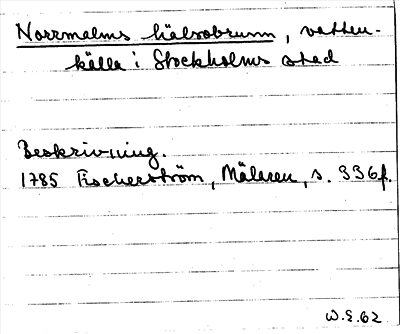 Norrmalms hälsobrunn, vatten-
källa i Stockholms stad
Beskrivning.
1785 Fischerström, Mälaren, s. 336f.
W.E.62